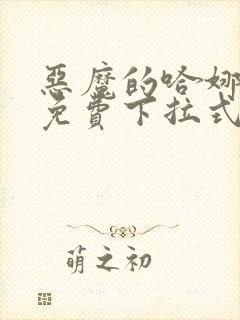 惡魔的哈娜
免費下拉式
萌之初